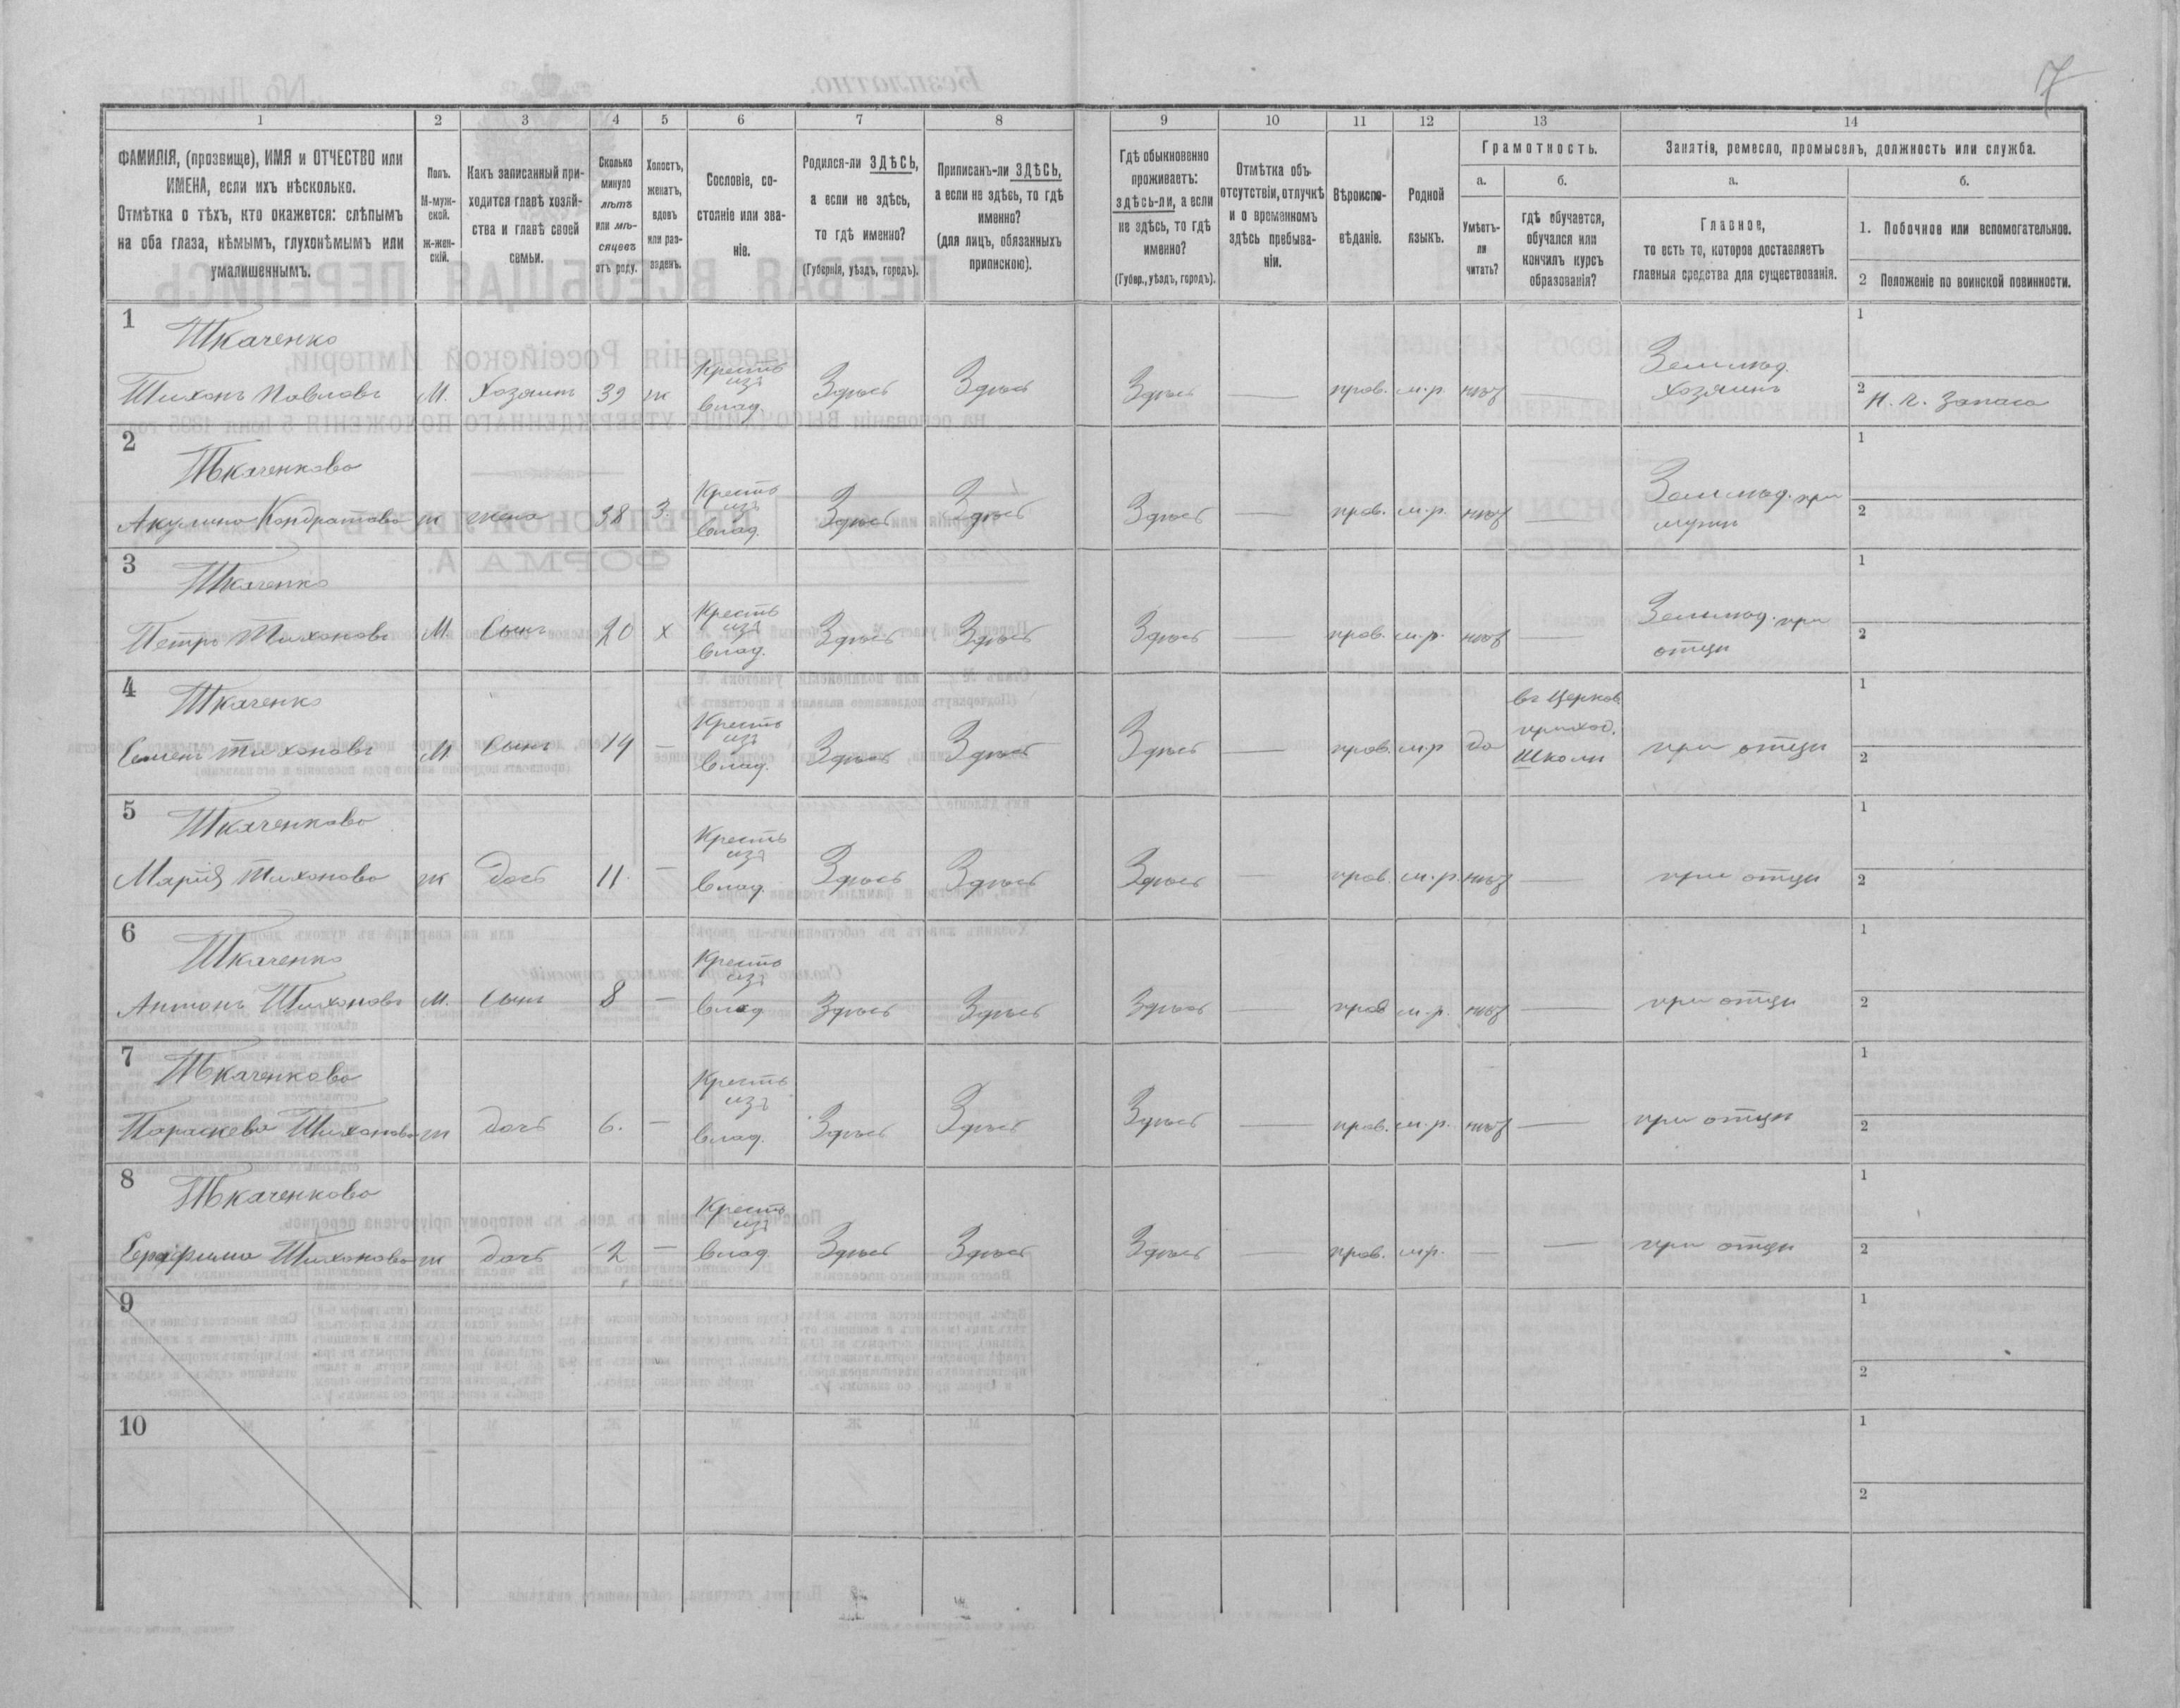 7
1 2 3 4 5 6 7 8 9 10 11 12 13 14
ФАМИЛІЯ, (прозвище), ИМЯ и ОТЧЕСТВО или
ИМЕНА, если ихъ нѣсколько.
Отмѣтка о тѣхъ, кто окажется: слѣпымъ
на оба глаза, нѣмымъ, глухонѣмымъ или
умалишеннымъ.
Полъ.
М-муж-
ской.
ж-жен-
скій.
Какъ записанный при-
ходится главѣ хозяй-
ства и главѣ своей
семьи.
Сколько
минуло
лѣтъ
или мѣ-
сяцевъ
отъ роду.
Холостъ,
женатъ,
вдовъ
или раз-
веденъ.
Сословіе, со-
стояніе или зва-
ніе.
Родился-ли ЗДѢСЬ,
а если не здѣсь,
то гдѣ именно?
(Губернія, уѣздъ, городъ).
Приписанъ-ли ЗДѢСЬ,
а если не здѣсь, то гдѣ
именно?
(для лицъ, обязанныхъ
припискою).
Гдѣ обыкновенно
проживаетъ:
здѣсь-ли, а если
не здѣсь, то гдѣ
именно?
(Губер., уѣздъ, городъ).
Отмѣтка объ
отсутствіи, отлучкѣ
и о временномъ
здѣсь пребыва-
ніи.
Вѣроиспо-
вѣданіе.
Родной
языкъ.
Грамотность.
а.
Умѣетъ-
ли
читать?
б.
гдѣ обучается,
обучался или
кончилъ курсъ
образованія?
Занятія, ремесло, промыселъ, должность или служба.
а.
Главное,
то есть то, которое доставляетъ
главныя средства для существованія.
б.
1. Побочное или вспомогательное.
2 Положеніе по воинской повинности.
1
Ткаченко
Тихонъ Павловъ М. Хозяинъ 39 ж Крестъ изъ влад. Здѣсь Здѣсь Здѣсь — прав. м.р. нѣт — Земллед. Хозяинъ
1
2 Н. г. запаса
2
Ткаченкова
Акулина Кондратова ж жена 38 З. Крестъ изъ влад. Здѣсь Здѣсь Здѣсь — прав. м.р. нѣт — Земллед. при мужи
1
2
3
Ткаченко
Петръ Тихоновъ М. Сынъ 20 х Крестъ изъ влад. Здѣсь Здѣсь Здѣсь — прав. м.р. нѣт — Земллед. при отци
1
2
4
Ткаченко
Семенъ Тихоновъ М Сынъ 14 — Крестъ изъ влад. Здѣсь Здѣсь Здѣсь — прав. м.р да въ Церков. приход. Школи при отци
1
2
5
Ткаченкова
Марія Тихонова ж дочь 11 — Крестъ изъ влад. Здѣсь Здѣсь Здѣсь — прав. м.р. нѣт — при отци
1
2
6
Ткаченко
Антонъ Тихоновъ М. Сынъ 8 — Крестъ изъ влад Здѣсь Здѣсь Здѣсь — прав м.р. нѣт — при отци
1
2
7
Ткаченкова
Параскева Тихонова ж дочь 6. — Крестъ изъ влад. Здѣсь Здѣсь Здѣсь — прав. м.р. нѣт — при отци
1
2
8
Ткаченкова
Серафима Тихонова ж дочь 2 — Крестъ изъ влад. Здѣсь Здѣсь Здѣсь — прав. м.р. — — при отци
1
2
9
1
2
10
1
2